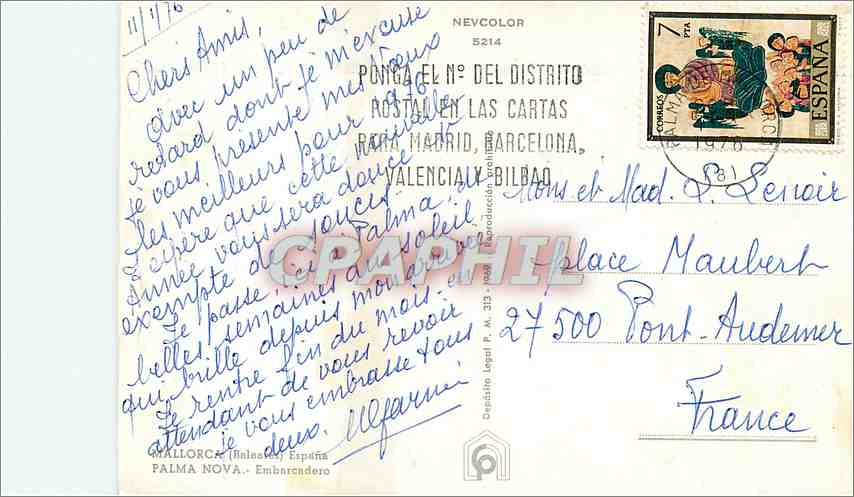 11/1/76
Chers Amis,
avec un peu de
retard dont je m'excuse
je vous présente mes Vœux
les meilleurs pour 976
J'espère que cette nouvelle
Année vous sera douce et
exempte de soucis.
Je passe ici à Palma, de
belles semaines au soleil
qui brille depuis mon arrivée
Je rentre fin du mois - en
attendant de vous revoir
je vous embrasse tous
deux.
MALLORCA (Baleares) España
PALMA NOVA.- Embarcadero
NEVCOLOR
5214
PONGA EL Nº DEL DISTRITO
POSTAL EN LAS CARTAS
PARA MADRID, BARCELONA,
VALENCIA Y BILBAO
7
PTA
CORREOS
ESPAÑA
1976
(81)
Mons et Mad. L. Lenoir
place Maubert
27500 Pont-Audemer
France
Depósito Legal P. M. 313 - 1969 Reproducción prohibida
CPAPHIL